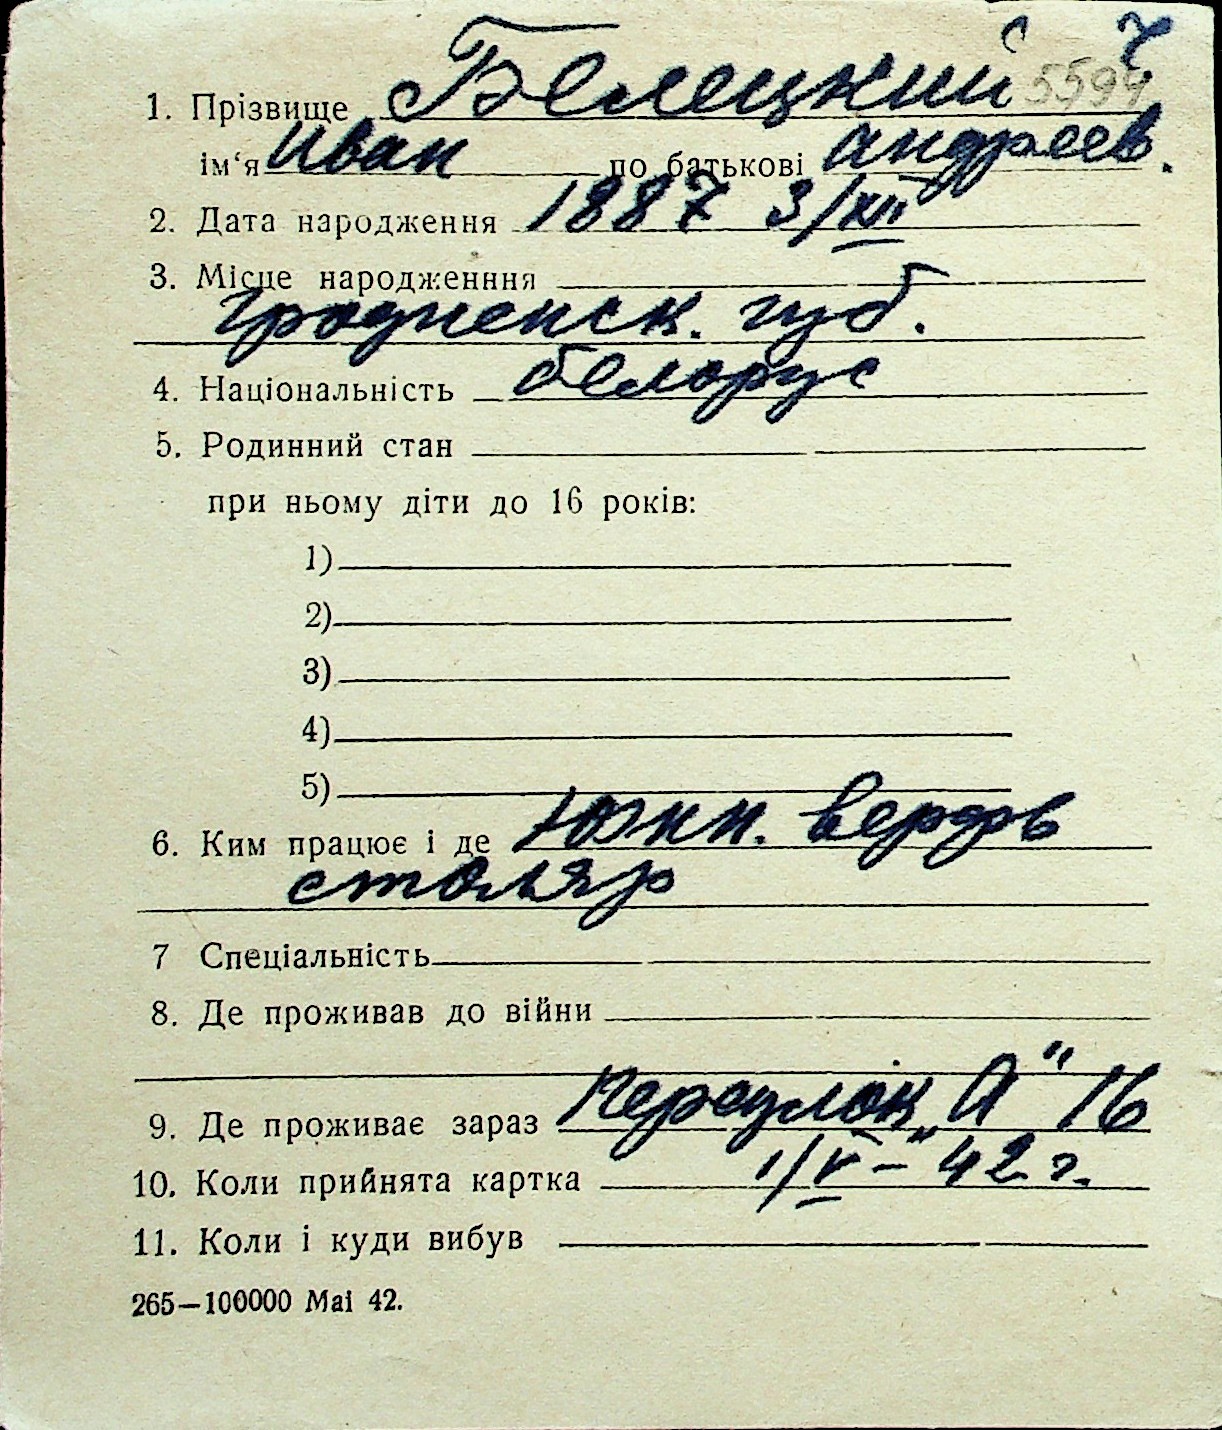 ч
5594
1. Прізвище Белецкий
ім‘я Иван по батькові Андреев.
2. Дата народження 1887 3/XII
3. Місце народженння
Гродненск. губ.
4. Національність белорус
5. Родинний стан
при ньому діти до 16 років:
1)
2)
3)
4)
5)
6. Ким працює і де Южн. верфь
столяр
7 Спеціальність
8. Де проживав до війни
9. Де проживає зараз Переулок „А“ 16
10. Коли прийнята картка 1/V – 42 г.
11. Коли і куди вибув
265—100000 Mai 42.